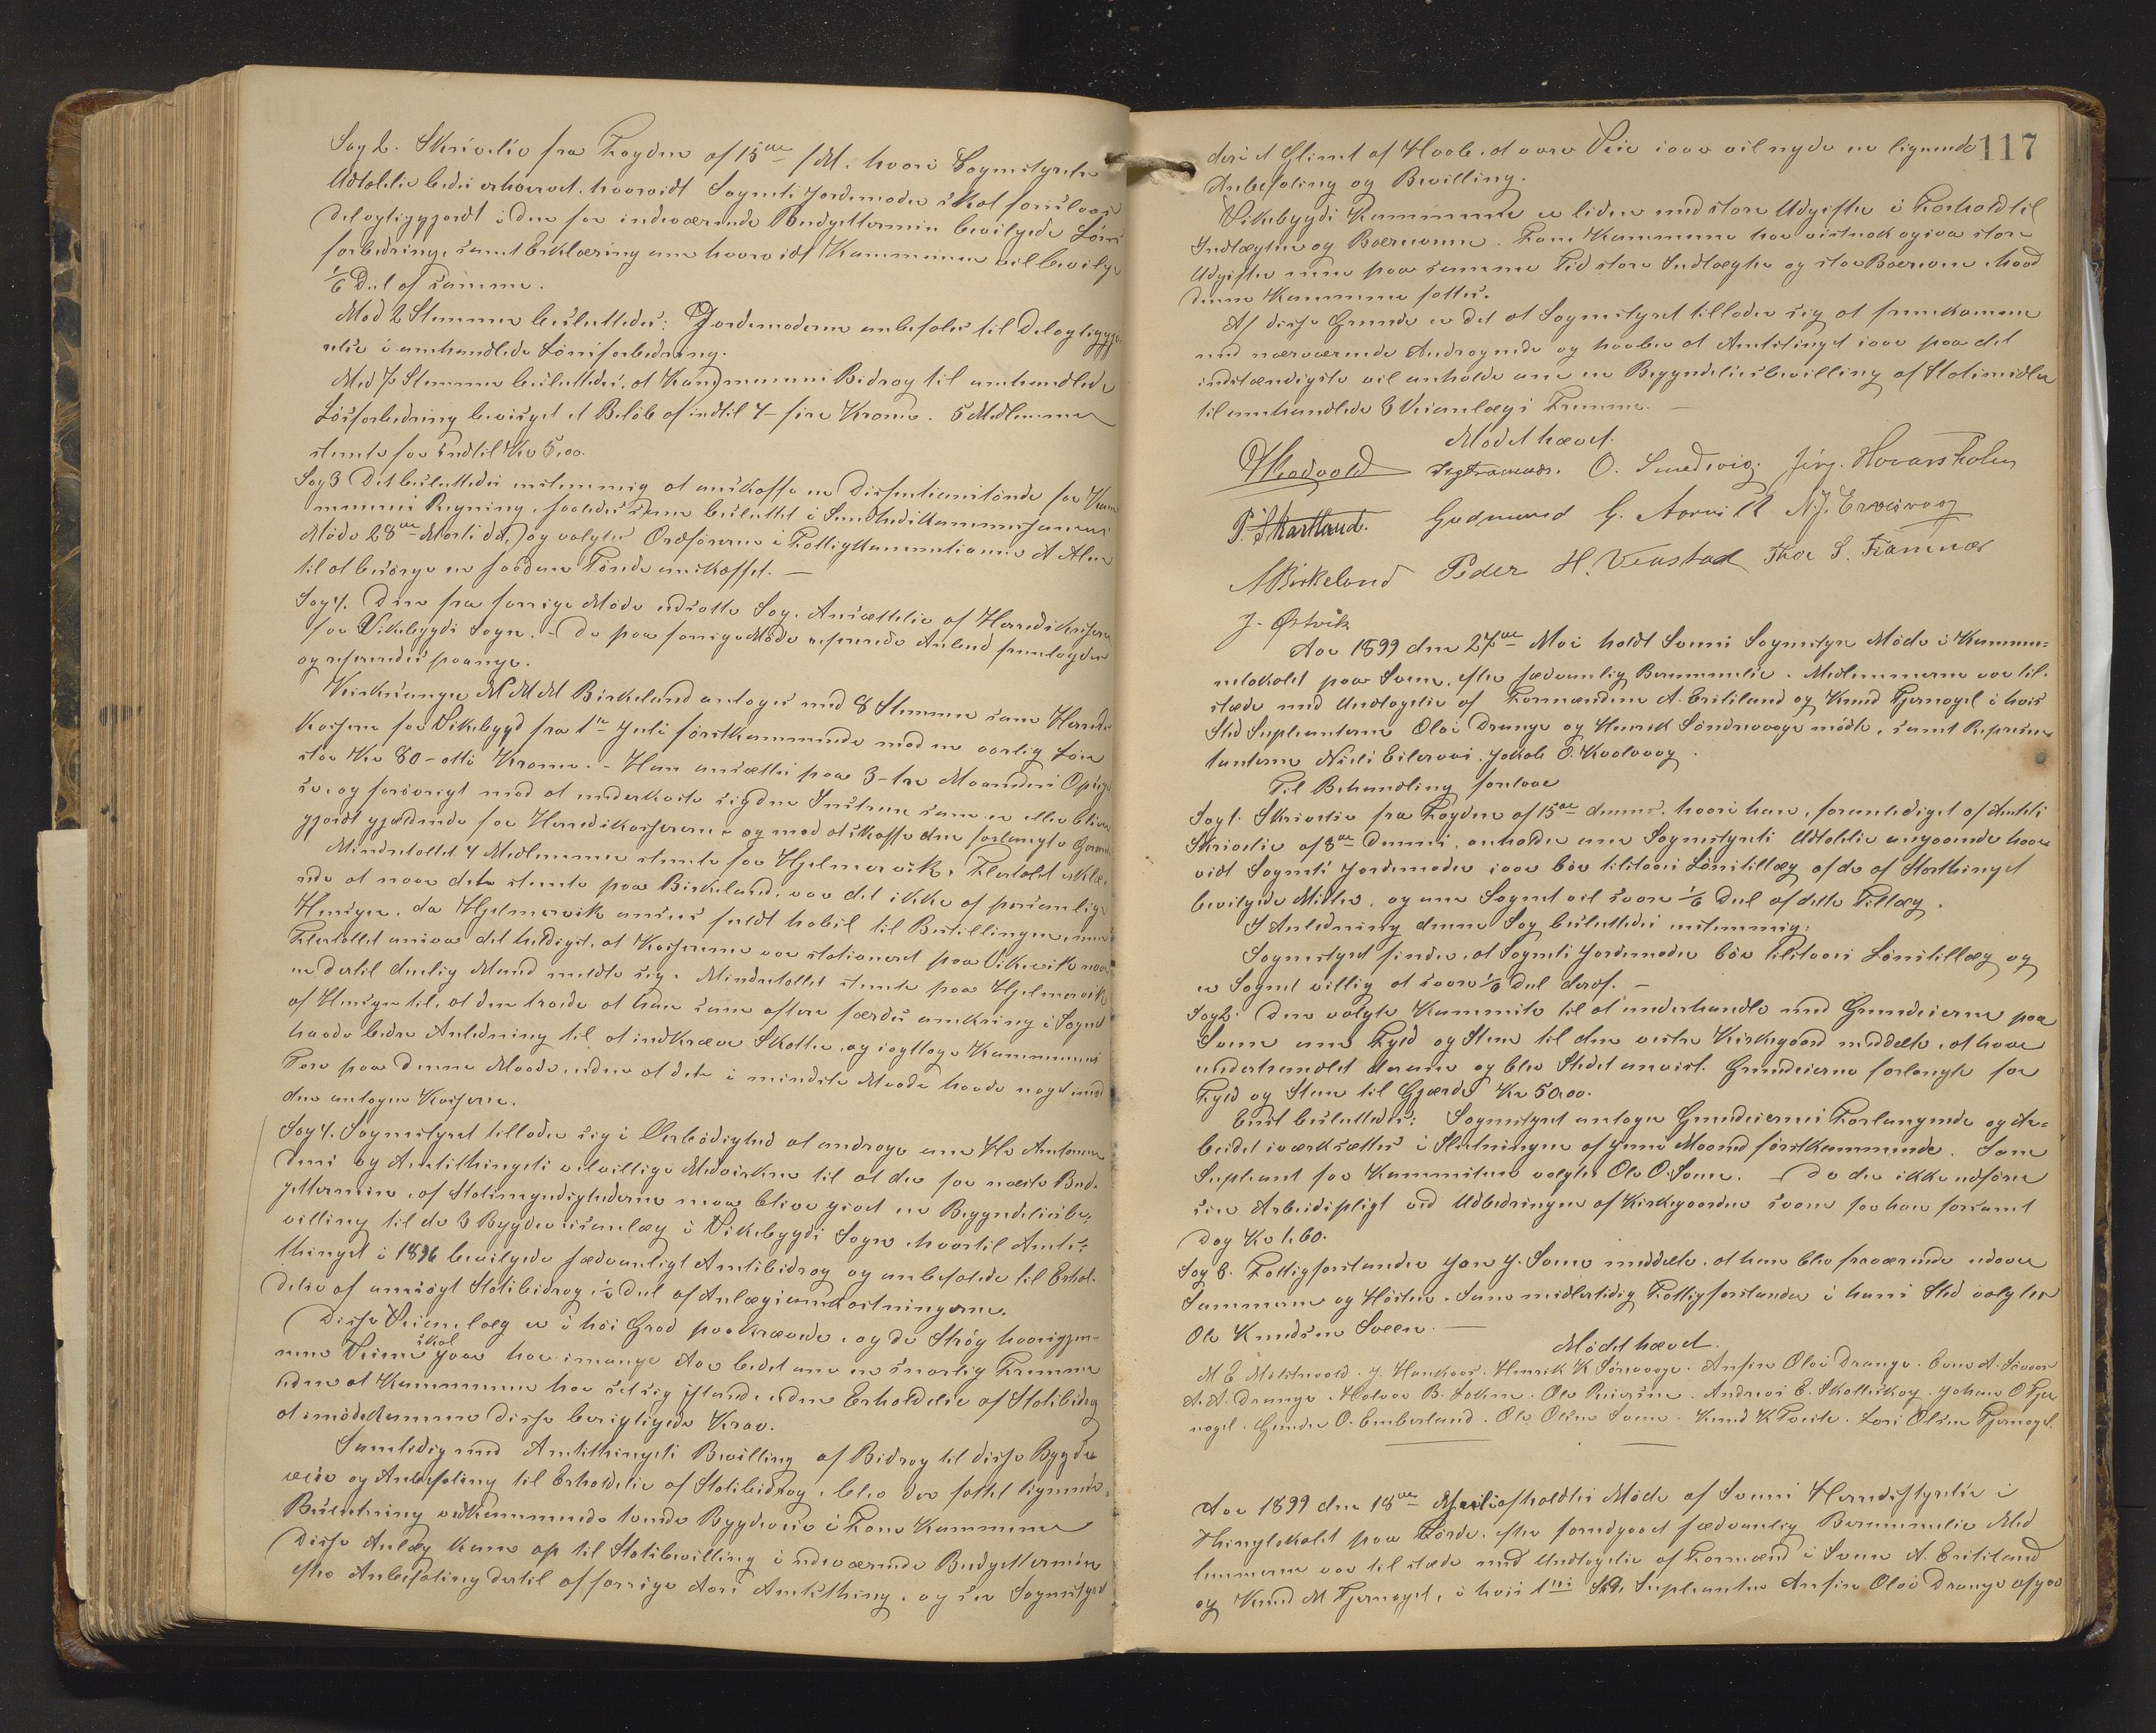 Sag 2. Skrivelse fra Fogden af 15de f. M. hvori Sognestyrets
Udtalelse bedes erhvervet, hvorvidt Sognets Jordemoder skal foreslaaes
delagtiggjordt i den for indeværende Budgettermin bevilgede Løns
forbedring, samt Erklæring om hvorvidt Kommunen vil bevilge
1/6 Del af samme.
Mod 2 Stemmer besluttedes: Jordemoderen anbefales til Delagtiggjø-
relse i omhandlede Lønsforbedring.
Med 7 Stemmer besluttedes, at Kommunens Bidrag til omhandlede
Lønsforbedring bevilges et Beløb af indtil 4 - fire Kroner. 5 Medlemmer
stemte for indtil Kr 5,00.
Sag 3 Det besluttedes enstemmig at anskaffe en Disfectionstønde for Kom
munens Regning, saaledes som besluttet i Sundhedskommissionens
Møde 28de Marts d. A. og valgtes Ordføreren i Fattigkommissionen A Alne
til at besørge en saadan Tønde anskaffet. -
Sag 4. Den fra forrige Møde udsatte Sag, Ansættelse af Herredskasserer
for Vikebygds Sogn. - De paa forrige Møde refererede Anbud fremlagdes
og refereredes paanye.
Kirkesanger M M M Birkeland antoges med 8 Stemmer som Herreds
kasserer for Vikebygd fra 1ste Juli førstkommende mod en aarlig Løn
stor Kr 80 - otti Kroner. - Han ansættes paa 3 - tre Maaneders Opsige
se, og forøvrigt mod at underkaste sig den Instrux som er eller bliver
gjordt gjældende for Herredskassereren og mod at skaffe den forlangte Garanti
Mindretallet 4 Medlemmer stemte for Hjelmervik. Flertallet erklæ-
rede at naar dette stemte paa Birkeland, var det ikke af personlige
Hensyn, da Hjelmervik ansees fuldt habil til Bestillingen, men
Flertallet ansaa det heldigst, at Kassereren var stationeret paa Vikevik naar
en dertil duelig Mand meldte sig. Mindretallet stemte paa Hjelmervik
af Hensyn til, at den troede at han som oftere færdes omkring i Sognet
havde bedre Anledning til at indkræve Skatter, og iagttage Kommunens
Tarv paa denne Maade, uden at dette i mindste Maade havde noget imod
den antagne Kasserer.
Sag 4. Sognestyret tillader sig i Ærbødighed at andrage om Hr Amtman
dens og Amtsthingets velvillige Medvirken til at der for næste Bud-
gettermin, af Statsmyndighederne maa blive givet en Begyndelsesbe-
villing til de 3 Bygdeveisanlæg i Vikebygds Sogn, hvortil Amts-
thinget i 1896 bevilgede sædvanligt Amtsbidrag og anbefalede til Erhol-
delse af ansøgt Statsbidrag 1/2 Del af Anlægsomkostningerne.
Disse Veianlæg er i høi Grad paakrævede, og de Strøg hvorigjen-
nem Veiene skal gaa har i mange Aar bedet om en snarlig Fremme
uden at Kommunen har set sig istand, uden Erholdelse af Statsbidrag
at imødekomme disse berigtigede Krav.
Samtidig med Amtsthingets Bevilling af Bidrag til disse Bygde
veie og Anbefaling til Erholdelse af Statsbidrag, blev der fattet lignende
Beslutning vedkommende tvende Bygdeveie i Fane Kommune
Disse Anlæg kom op til Statsbevilling i indeværende Budgettermin
efter Anbefaling dertil af forrige Aars Amtsthing, og ser Sognestyret
117
deri et Glimt af Haab, at vore Veie iaar vil nyde en lignende
Anbefaling og Bevilling.
Vikebygds Kommune er liden med store Udgifter i Forhold til
Indtægten og Bæreevnen. Fane Kommune har vistnok ogsaa store
Udgifter men paa samme Tid store Indtægter og stor Bæreevne, hvad
denne Kommune fattes.
Af disse Grunde er det at Sognestyret tillader sig at fremkomme
med nærværende Andragende og haaber at Amtsthinget iaar paa det
indstændigste vil anholde om en Begyndelsesbevilling af Statsmidler
til omhandlede 3 Veianlægs Fremme. -
Mødet hævet.
O. Smedsvig. Jørg. Hovarsholm
P. Skartland. Gudmund G. Aarvik N. J. Ersvaag
MBirkeland Peder H. Venstad Thor S. Framnæs
J. Østvik
Aar 1899 den 27de Mai holdt Sveens Sognestyre Møde i Kommu-
nelokalet paa Sveen, efter sædvanlig Berammelse. Medlemmerne var til-
stede med Undtagelse af Formændene A. Eritsland og Knud Tjernagel i hvis
Sted Supleanterne Olai Drange og Henrik Søndrevaage mødte, samt Repræsen
tanterne Niels Eileraas, Jakob O. Kvalvaag.
Til Behandling forelaae
Sag 1. Skrivelse fra Fogden af 15de dennes, hvori han, foranlediget af Amtets
Skrivelse af 8de dennes, anholder om Sognestyrets Udtalelse angaaende hvor
vidt Sognets Jordemoder iaar bør tilstaaes Lønstillæg af de af Storthinget
bevilgede Midler, og om Sognet vil svare 1/6 Del af dette Tillæg.
I Anledning denne Sag besluttedes enstemmig:
Sognestyret finder, at Sognets Jordemoder bør tilstaaes Lønstillæg og
er Sognet villig at svare 1/6 Del deraf. -
Sag 2. Den valgte Kommite til at underhandle med Grundeierne paa
Sveen om Fyld og Sten til den vestre Kirkegaard meddelte, at have
underhandlet derom og blev Stedet anvist. Grundeierne forlangte for
Fyld og Sten til Gjærde Kr 50.00.
Enst besluttedes: Sognestyret antager Grundeiernes Forlangende og Ar-
beidet iværksættes i Slutningen af Juni Maaned førstkommende. Som
Supleant for Kommiteen valgtes Ole O. Sveen. - De der ikke udfører
sin Arbeidspligt ved Udbedringen af Kirkegaarden svarer for hver forsømt
Dag Kr 1.60.
Sag 3. Fattigforstander Jon J. Sveen meddelte, at han blev fraværende udover
Sommeren og Høsten. Som midlertidig Fattigforstander i hans Sted valgtes
Ole Knudsen Sveen. -
Mødet hævet.
M E Mølstrevold. J. Haukaas. Henrik K Sørvaage. Anfin Olai Drange. Even A. Sivaar
A. A. Drange. Halvor B. Lokne. Ole Reiersen. Andreas E. Skalleskog. Johan O Tjer
nagel. Gunder O. Emberland. Ole Olsen Sveen. Knud K Tveite. Lars Olsen Tjernagel.
Aar 1899 den 18de April afholdtes Møde af Sveens Herredsstyrelse i
Thinglokalet paa Førde, efter forudgaaet sædvanlig Berammelse Med
lemmerne var til stede med Undtagelse af Formænd i Sveen A. Eritsland
og Knud M Tjernagel, i hvis 1stes Sted Supleanten Anfin Olai Drange afgav